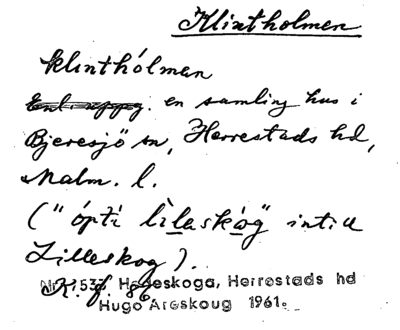 Klintholmen
klinthólman
en samling hus i
Bjeresjö sn, Herrestads hd,
Malm. l.
("ópti lìlaskóg" intill
Lilleskog).
Hedeskoga, Herrestads hd
K. f. 86.
Hugo Areskoug 1961.